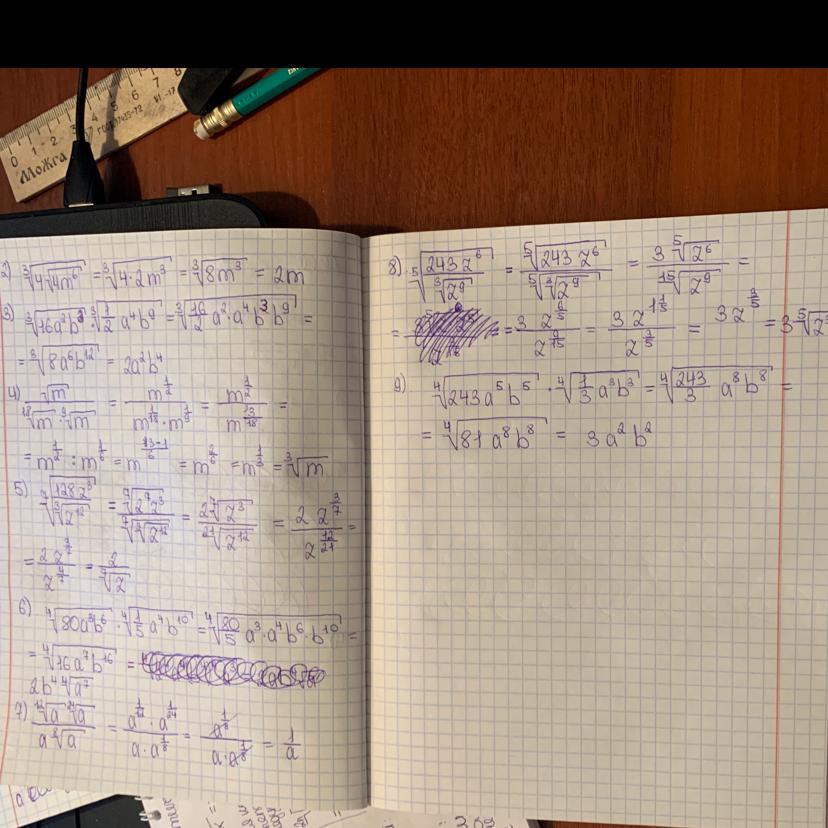 0 1 2 3 4 5 6 7 8
ГОСТ 17435-72
Можга
2) ∛(4√(4m⁶)) = ∛(4·2m³) = ∛(8m³) = 2m
3) ∛(16a²b³) · ∛(1/2 a⁴b⁹) = ∛(16/2 a²·a⁴b³b⁹) =
= ∛(8a⁶b¹²) = 2a²b⁴
4) √m / (¹⁸√m · ⁹√m) = m^(1/2) / (m^(1/18) · m^(1/9)) = m^(1/2) / m^(3/18) =
= m^(1/2) : m^(1/6) = m^((3-1)/6) = m^(2/6) = m^(1/3) = ∛m
5) ⁷√(128z³ / ∛(z¹²)) = ⁷√(2⁷z³) / ⁷√(∛(z¹²)) = 2 ⁷√(z³) / ²¹√(z¹²) = 2 z^(3/7) / z^(12/21) =
= 2 z^(3/7) / z^(4/7) = 2 / ⁷√z
6) ⁴√(80a³b⁶) · ⁴√(1/5 a⁴b¹⁰) = ⁴√(80/5 a³·a⁴b⁶·b¹⁰) =
= ⁴√(16a⁷b¹⁶) =
2b⁴ ⁴√(a⁷)
7) ¹²√a ²⁴√a / (a ⁸√a) = a^(1/12) · a^(1/24) / (a·a^(1/8)) = a^(1/8) / (a·a^(1/8)) = 1/a
8) ⁵√(243z⁶ / ∛(z⁹)) = ⁵√(243z⁶) / ⁵√(∛(z⁹)) = 3 ⁵√(z⁶) / ¹⁵√(z⁹) =
= = 3 z^(6/5) / z^(9/15) = 3 z^(1 1/5) / z^(3/5) = 3z^(3/5) = 3 ⁵√(z³)
9) ⁴√(243a⁵b⁵) · ⁴√(1/3 a³b³) = ⁴√(243/3 a⁸b⁸) =
= ⁴√(81a⁸b⁸) = 3a²b²